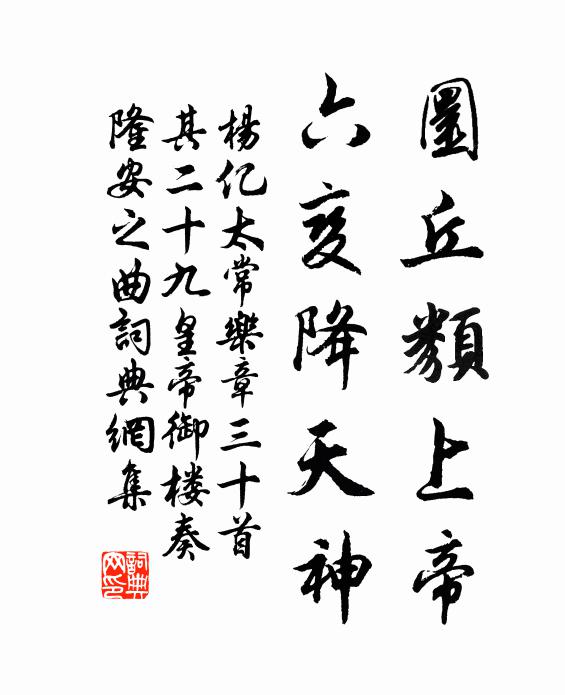 圜丘類上帝
六变降天神
楊亿太常樂章三十首
其二十九皇帝御楼奏
隆安之曲詞典網集
詞典网印